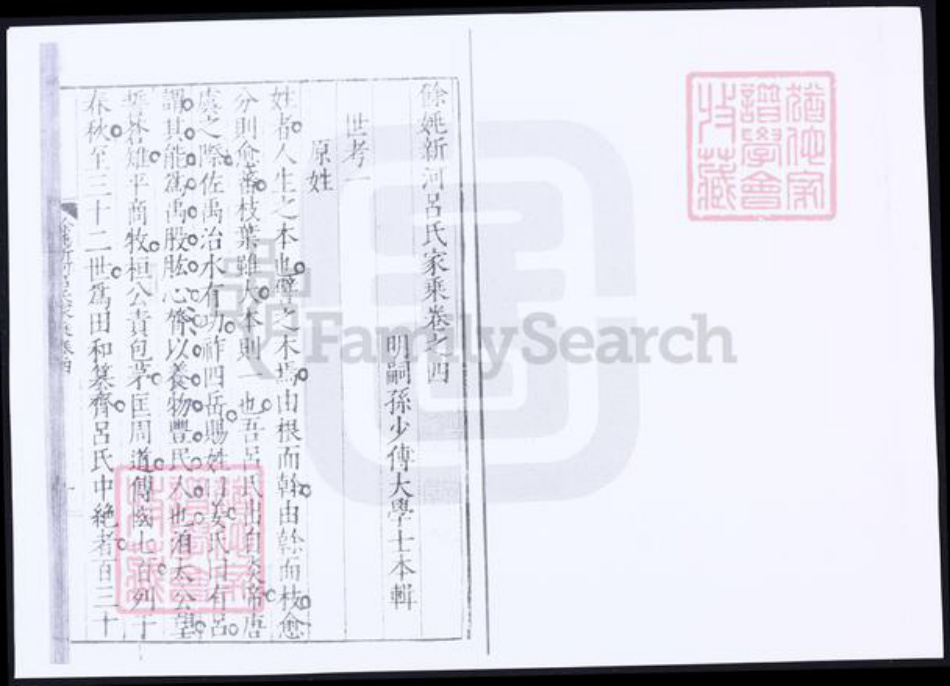 餘姚新河呂氏家乘卷之四
明嗣孫少傅大學士本輯
世考一
原姓
姓者人生之本也譬之木焉由根而榦由榦而枝愈
分則愈蕃枝葉雖大本則一也吾呂氏出自炎帝唐
虞之際佐禹治水有功祚四岳賜姓曰姜氏曰有呂
謂其能爲禹股肱心膂以養物豐民人也洎太公望
誓蒼雉平商牧桓公責包茅匡周道傳國七百列于
春秋至三十二世爲田和篡齊呂氏中絶者百三十
餘姚新河呂氏家乘卷四
猶他家
譜學會
收藏
FamilySearch